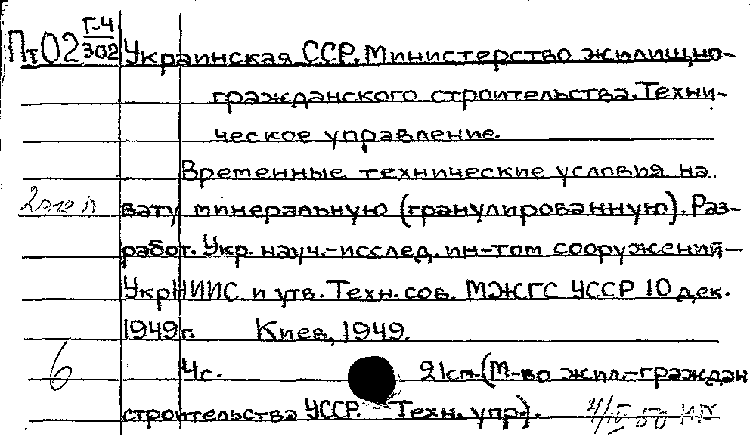 Пт02 Г-4/302 Украинская ССР. Министерство жилищно-
гражданского строительства. Техни-
ческое управление.
Временные технические условия на
вату минеральную (гранулированную). Раз-
работ. Укр. науч.-исслед. ин-том сооружений-
УкрНИИС и утв. Техн. сов. МЖГС УССР 10 дек.
1949г. Киев, 1949.
6 4с. 21см. (М-во жил.-граждан
строительства УССР. Техн. упр).